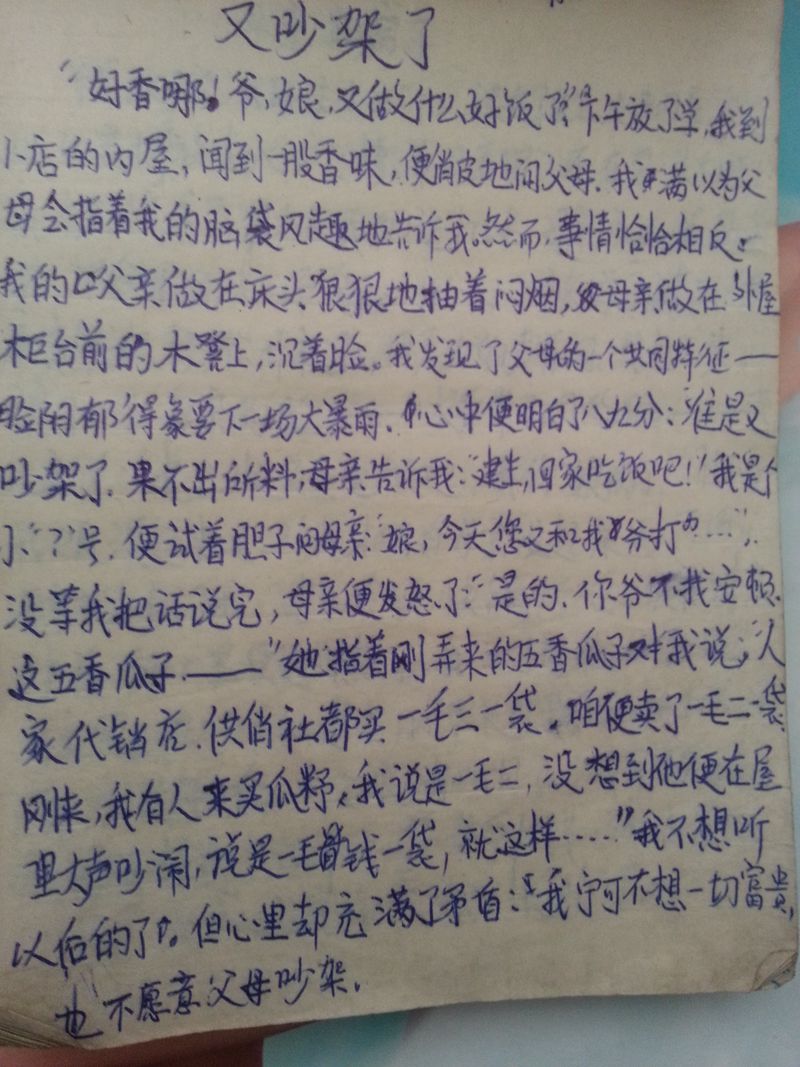 又吵架了
"好香哪!爷,娘,又做什么好饭了?"下午放了学,我到
小店的内屋,闻到一股香味,便俏皮地问父母.我满以为父
母会指着我的脑袋风趣地告诉我。然而,事情恰恰相反。
我的父亲做在床头狠狠地抽着闷烟,母亲做在外屋
柜台前的木凳上,沉着脸。我发现了父母的一个共同特征——
脸阴郁得象要下一场大暴雨.心中便明白了八九分:准是又
吵架了.果不出所料,母亲告诉我:"建生,回家吃饭吧!"我是个
小"?"号.便试着胆子问母亲"娘,今天您又和我爷打……",
没等我把话说完,母亲便发怒了:"是的.你爷不我安顿.
这五香瓜子——"她指着刚弄来的五香瓜子对我说:"人
家代销店.供俏社都买一毛三一袋。咱便卖了一毛二一袋.
刚来,我有人来买瓜籽,我说是一毛二,没想到他便在屋
里大声吵闹,说是一毛钱一袋,就这样……"我不想听
以后的了。但心里却充满了矛盾:我宁可不想一切富贵,
也不愿意父母吵架.